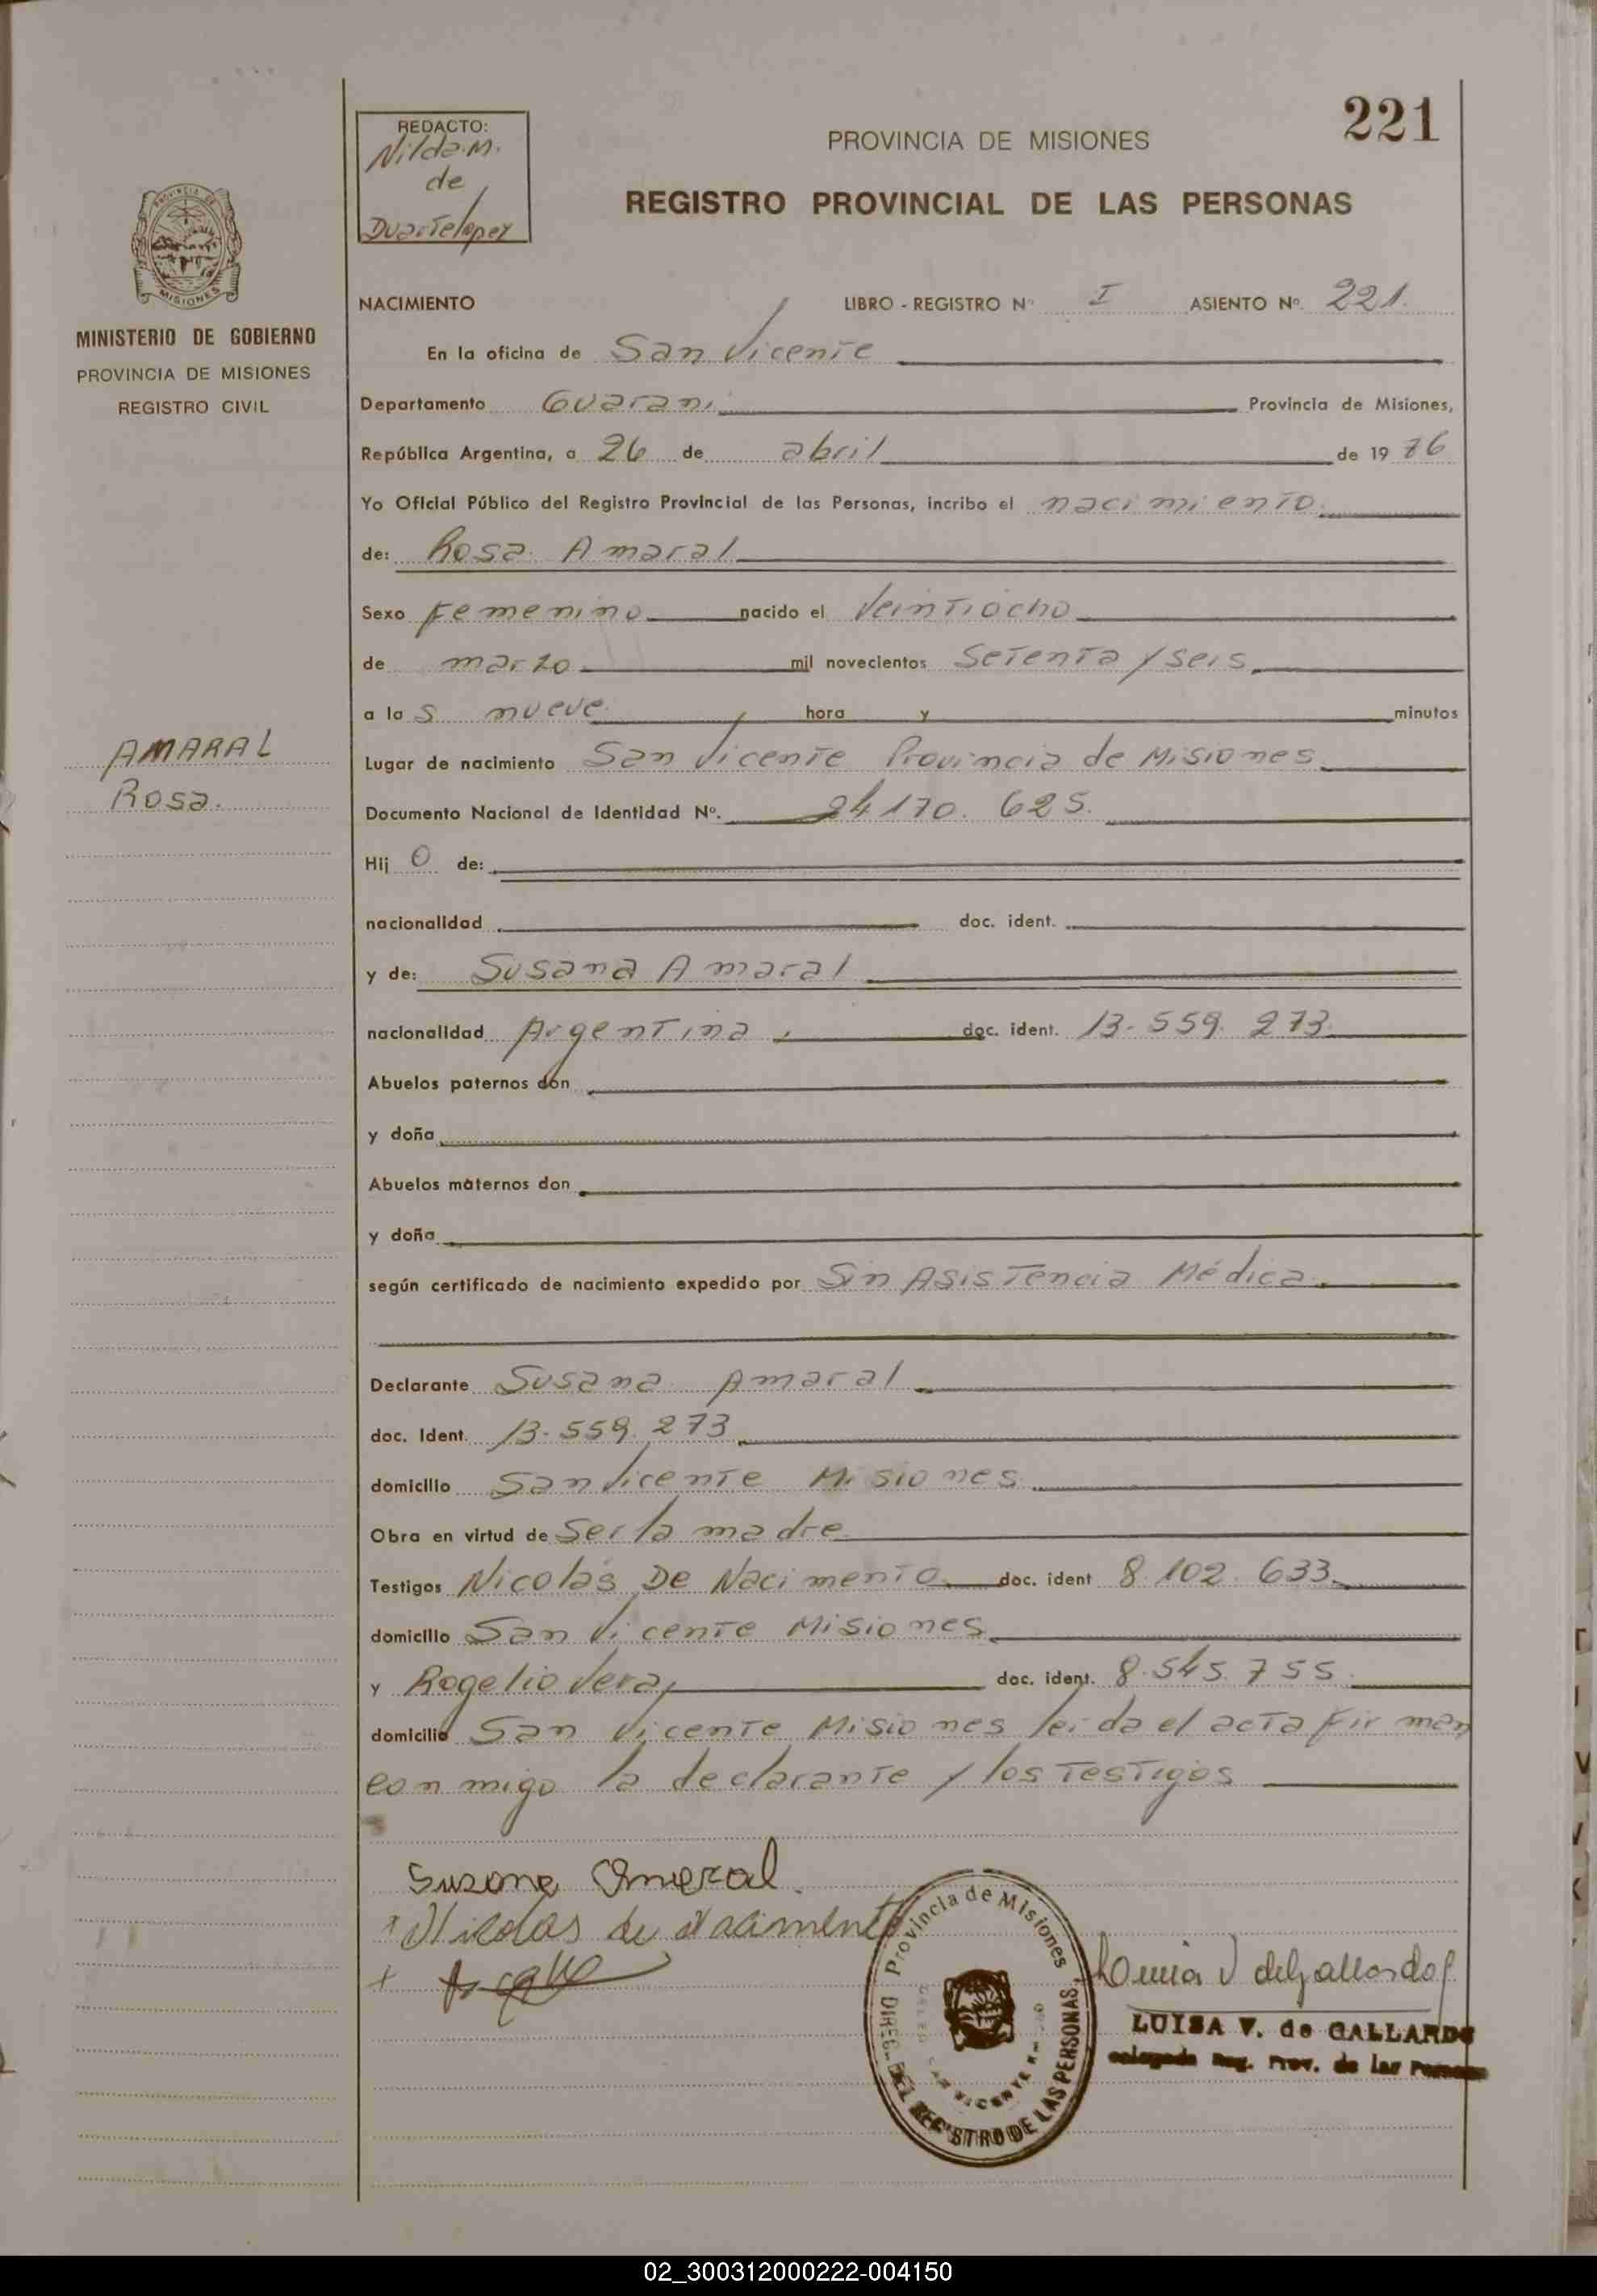 221
REDACTO:
Nilda M.
de
Duarte lopez
PROVINCIA DE MISIONES
REGISTRO PROVINCIAL DE LAS PERSONAS
PROVINCIA DE
MISIONES
MINISTERIO DE GOBIERNO
PROVINCIA DE MISIONES
REGISTRO CIVIL
AMARAL
Rosa.
NACIMIENTO LIBRO - REGISTRO Nº I ASIENTO Nº. 221.
En la oficina de San Vicente
Departamento Guarani Provincia de Misiones,
República Argentina, a 26 de abril de 19 76
Yo Oficial Público del Registro Provincial de las Personas, incribo el nacimiento
de: Rosa Amaral
Sexo Femenino nacido el Veintiocho
de marzo mil novecientos Setenta y seis
a la s nueve hora y minutos
Lugar de nacimiento San Vicente Provincia de Misiones
Documento Nacional de Identidad Nº. 24170. 625.
Hij o de:
nacionalidad doc. ident.
y de: Susana Amaral
nacionalidad Argentina, doc. ident. 13-559. 273
Abuelos paternos don
y doña
Abuelos maternos don
y doña
según certificado de nacimiento expedido por Sin Asistencia Médica
Declarante Susana Amaral
doc. Ident. 13-559. 273
domicilio San Vicente Misiones
Obra en virtud de Ser la madre
Testigos Nicolás De Nacimento doc. ident 8.102.633
domicilio San Vicente Misiones
y Rogelio Vera, doc. ident. 8.545.755
domicilio San Vicente Misiones leida el acta firman
conmigo la declarante y los testigos
Susana Amaral.
Nikolas de Nacimento
Provincia de Misiones
DIREC. DEL REGISTRO DE LAS PERSONAS
SAN VICENTE
LUISA V. de GALLARDO
Delegada Reg. Prov. de las Personas
02_300312000222-004150